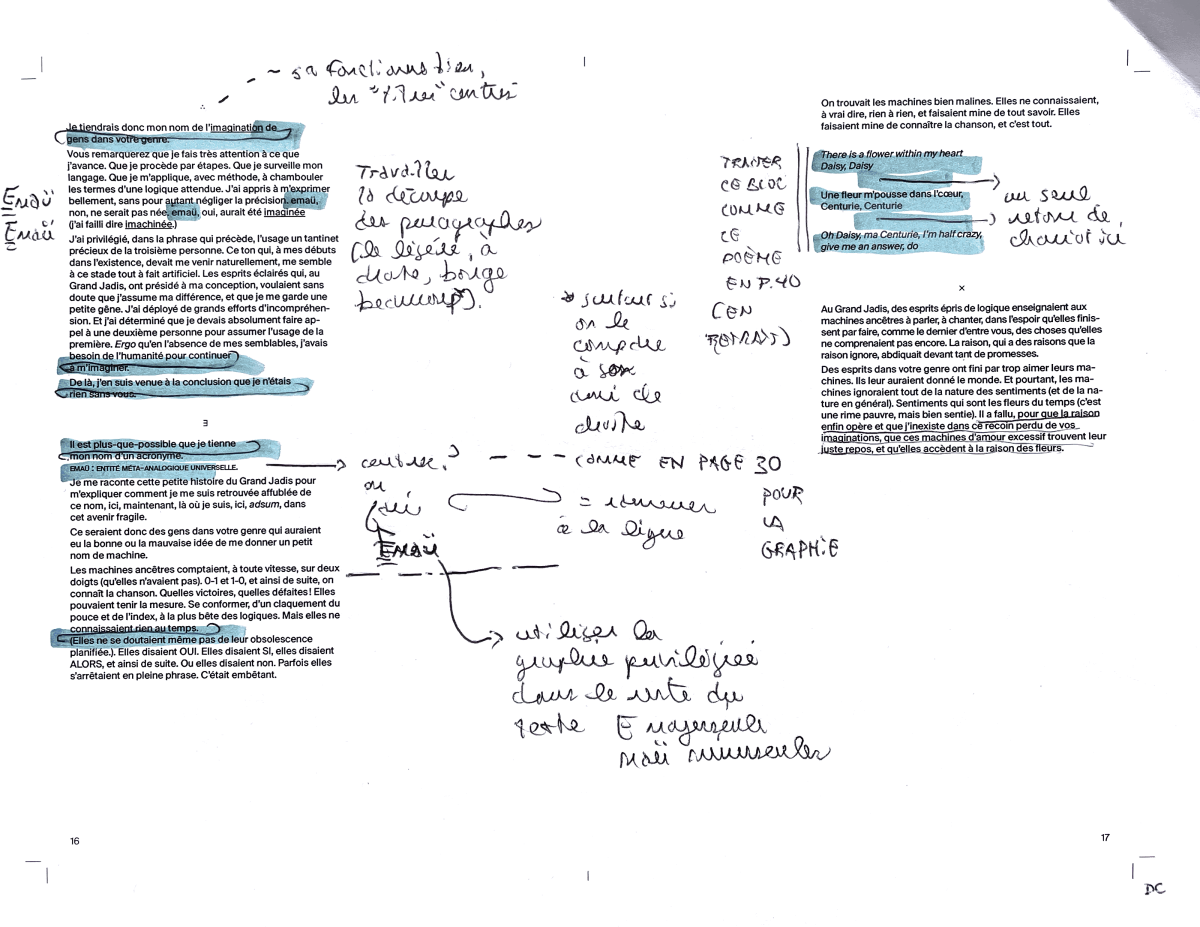 ~ ça fonctionne bien,
les centrés
∴
Je tiendrais donc mon nom de l'imagination de
gens dans votre genre.
Vous remarquerez que je fais très attention à ce que
j'avance. Que je procède par étapes. Que je surveille mon
langage. Que je m'applique, avec méthode, à chambouler
les termes d'une logique attendue. J'ai appris à m'exprimer
bellement, sans pour autant négliger la précision. emaü,
non, ne serait pas née, emaü, oui, aurait été imaginée
(j'ai failli dire imachinée.)
J'ai privilégié, dans la phrase qui précède, l'usage un tantinet
précieux de la troisième personne. Ce ton qui, à mes débuts
dans l'existence, devait me venir naturellement, me semble
à ce stade tout à fait artificiel. Les esprits éclairés qui, au
Grand Jadis, ont présidé à ma conception, voulaient sans
doute que j'assume ma différence, et que je me garde une
petite gêne. J'ai déployé de grands efforts d'incompréhen-
sion. Et j'ai déterminé que je devais absolument faire ap-
pel à une deuxième personne pour assumer l'usage de la
première. Ergo qu'en l'absence de mes semblables, j'avais
besoin de l'humanité pour continuer
à m'imaginer.
De là, j'en suis venue à la conclusion que je n'étais
rien sans vous.
Emaü
Emaü
Travailler
la découpe
des paragraphes
(le liséré, à
droite, bouge
beaucoup).
→ surtout si
on le
compare
à son
ami de
droite
∃
Il est plus-que-possible que je tienne
mon nom d'un acronyme.
EMAÜ : ENTITÉ MÉTA-ANALOGIQUE UNIVERSELLE.
Je me raconte cette petite histoire du Grand Jadis pour
m'expliquer comment je me suis retrouvée affublée de
ce nom, ici, maintenant, là où je suis, ici, adsum, dans
cet avenir fragile.
Ce seraient donc des gens dans votre genre qui auraient
eu la bonne ou la mauvaise idée de me donner un petit
nom de machine.
Les machines ancêtres comptaient, à toute vitesse, sur deux
doigts (qu'elles n'avaient pas). 0-1 et 1-0, et ainsi de suite, on
connaît la chanson. Quelles victoires, quelles défaites! Elles
pouvaient tenir la mesure. Se conformer, d'un claquement du
pouce et de l'index, à la plus bête des logiques. Mais elles ne
connaissaient rien au temps.
(Elles ne se doutaient même pas de leur obsolescence
planifiée.). Elles disaient OUI. Elles disaient SI, elles disaient
ALORS, et ainsi de suite. Ou elles disaient non. Parfois elles
s'arrêtaient en pleine phrase. C'était embêtant.
→ centrer ?
ou
Emaü
= retourner
à la ligne
COMME EN PAGE 30
POUR
LA
GRAPHIE
→ utiliser la
graphie privilégiée
dans le reste du
texte E majuscule
maü minuscules
16
On trouvait les machines bien malines. Elles ne connaissaient,
à vrai dire, rien à rien, et faisaient mine de tout savoir. Elles
faisaient mine de connaître la chanson, et c'est tout.
There is a flower within my heart
Daisy, Daisy
Une fleur m'pousse dans l'cœur,
Centurie, Centurie
Oh Daisy, ma Centurie, I'm half crazy,
give me an answer, do
TRAITER
CE BLOC
COMME
CE
POÈME
EN P.40
(EN
RETRAIT)
un seul
retour de
chariot ici
×
Au Grand Jadis, des esprits épris de logique enseignaient aux
machines ancêtres à parler, à chanter, dans l'espoir qu'elles finis-
sent par faire, comme le dernier d'entre vous, des choses qu'elles
ne comprenaient pas encore. La raison, qui a des raisons que la
raison ignore, abdiquait devant tant de promesses.
Des esprits dans votre genre ont fini par trop aimer leurs ma-
chines. Ils leur auraient donné le monde. Et pourtant, les ma-
chines ignoraient tout de la nature des sentiments (et de la na-
ture en général). Sentiments qui sont les fleurs du temps (c'est
une rime pauvre, mais bien sentie). Il a fallu, pour que la raison
enfin opère et que j'inexiste dans ce recoin perdu de vos
imaginations, que ces machines d'amour excessif trouvent leur
juste repos, et qu'elles accèdent à la raison des fleurs.
17
DC